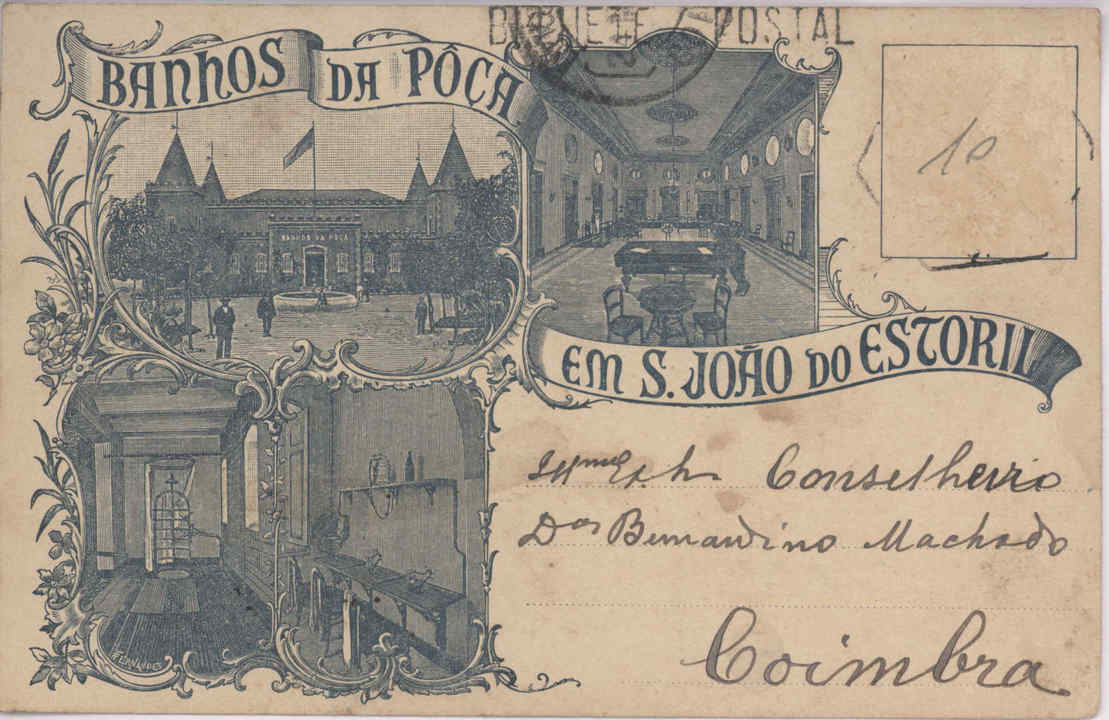 BILHETE POSTAL
BANHOS DA PÔÇA
10
BANHOS DA PÔÇA
EM S. JOÃO DO ESTORIL
Conselheiro
Bernardino Machado
Coimbra
FERNANDES